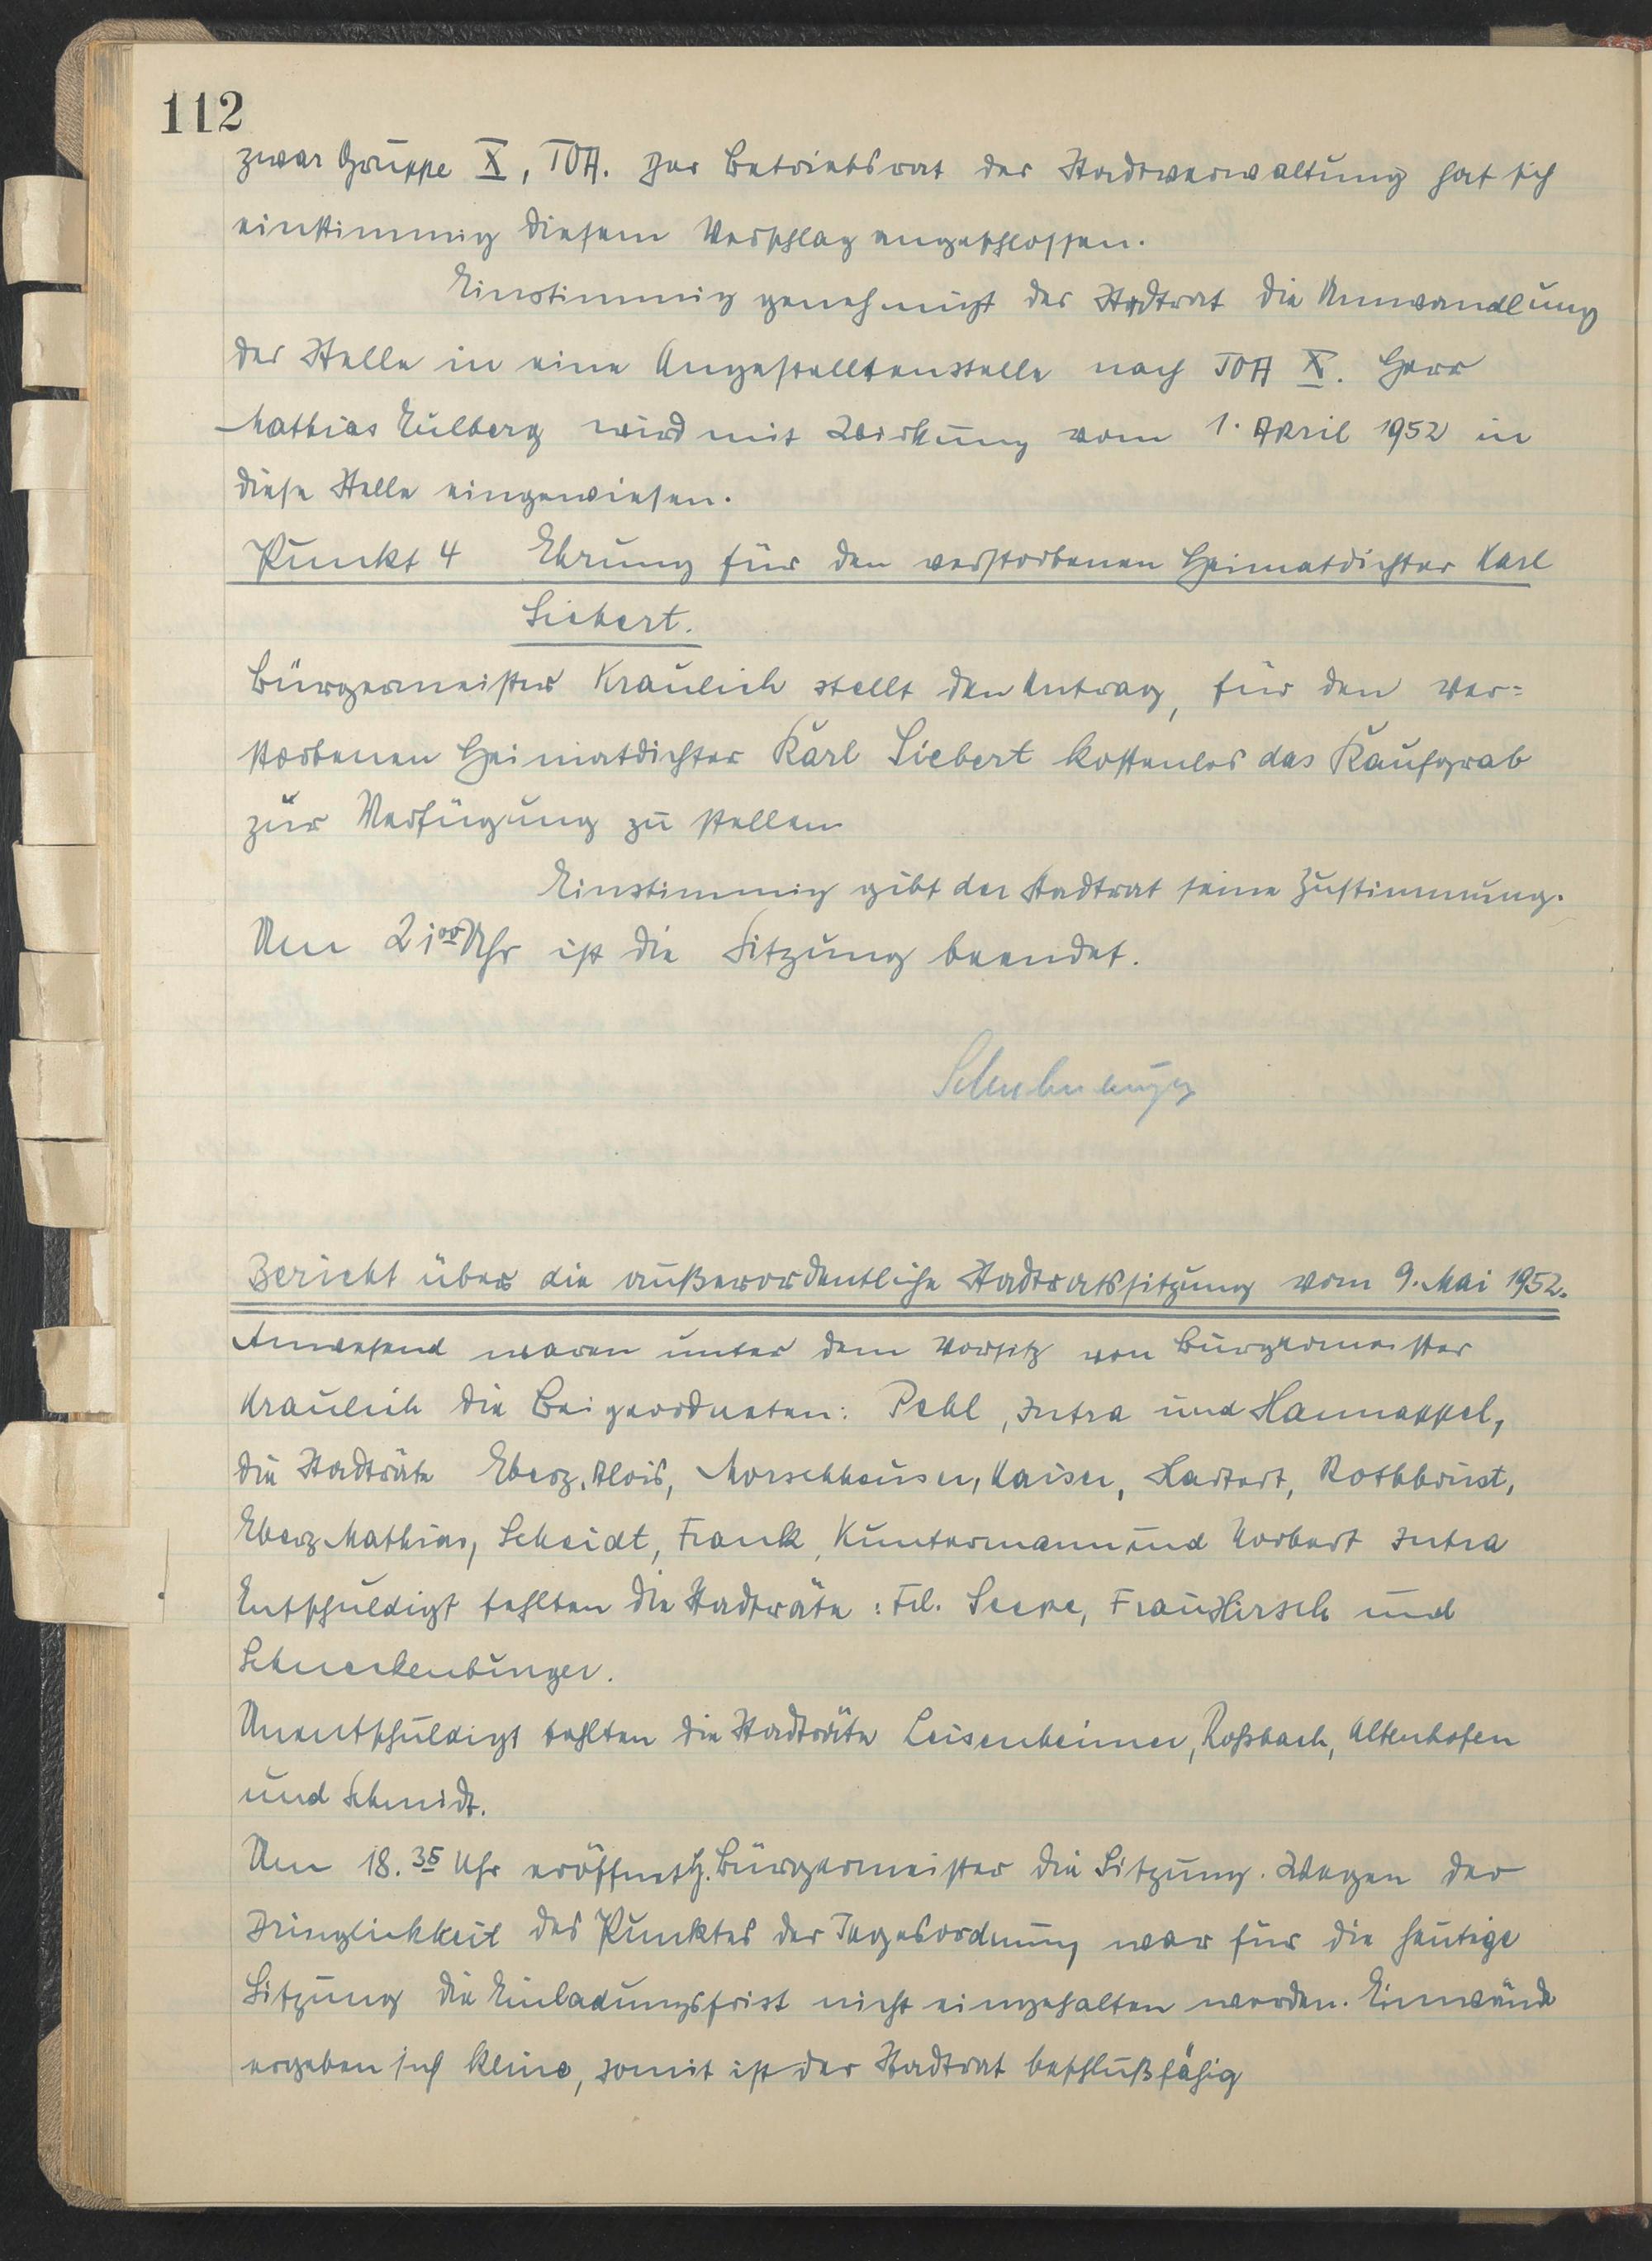 112
zwar Gruppe X, TOA. Der Betriebsrat der Stadtverwaltung hat sich
einstimmig diesem Vorschlag angeschlossen.
Einstimmig genehmigt der Stadtrat die Umwandlung
der Stelle in eine Angestelltenstelle nach TOA X. Herr
Mathias Eulberg wird mit Wirkung vom 1. April 1952 in
diese Stelle eingewiesen.
Punkt 4 Ehrung für den verstorbenen Heimatdichter Karl
Siebert.
Bürgermeister Kraulich stellt den Antrag, für den ver=
storbenen Heimatdichter Karl Siebert kostenlos das Kaufgrab
zur Verfügung zu stellen
Einstimmig gibt der Stadtrat seine Zustimmung.
Um 21⁰⁰ Uhr ist die Sitzung beendet.
Bericht über die außerordentliche Stadtratssitzung vom 9. Mai 1952.
Anwesend waren unter dem Vorsitz von Bürgermeister
Kraulich die Beigeordneten: Pehl, Intra und Hannappel,
die Stadträte Eberz, Alois, Morschhäuser, Kaiser, Hartert, Rothbrust,
Eberz Mathias, Scheidt, Frank, Kuntermann und Norbert Intra
Entschuldigt fehlten die Stadträte: Frl. Seepe, Frau Hirsch und
Schneckenbürger.
Unentschuldigt fehlten die Stadträte Leisenheimer, Roßbach, Altenhofen
und Schmidt.
Um 18.35 Uhr eröffnet H. Bürgermeister die Sitzung. Wegen der
Dringlichkeit des Punktes der Tagesordnung war für die heutige
Sitzung die Einladungsfrist nicht eingehalten worden. Einwände
ergeben sich keine, somit ist der Stadtrat beschlußfähig